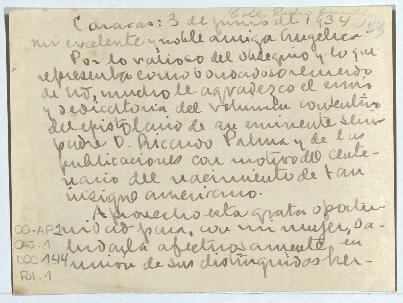 Caracas: 3 de junio de 1934
mi excelente y noble amiga Angélica
Por lo valioso del obsequio y lo que
representa como bondadoso recuerdo
de Ud., mucho le agradezco el envío
y dedicatoria del volumen contentivo
del epistolario de su eminente señor
padre D. Ricardo Palma y de las
publicaciones con motivo del cente-
nario del nacimiento de tan
insigne americano.
Aprovecho esta grata oportu-
nidad para, con mi mujer, sa-
ludarla afectuosamente en
unión de sus distinguidos her-
OO-AP1
CAJ.1
DOC 144
FOL.1